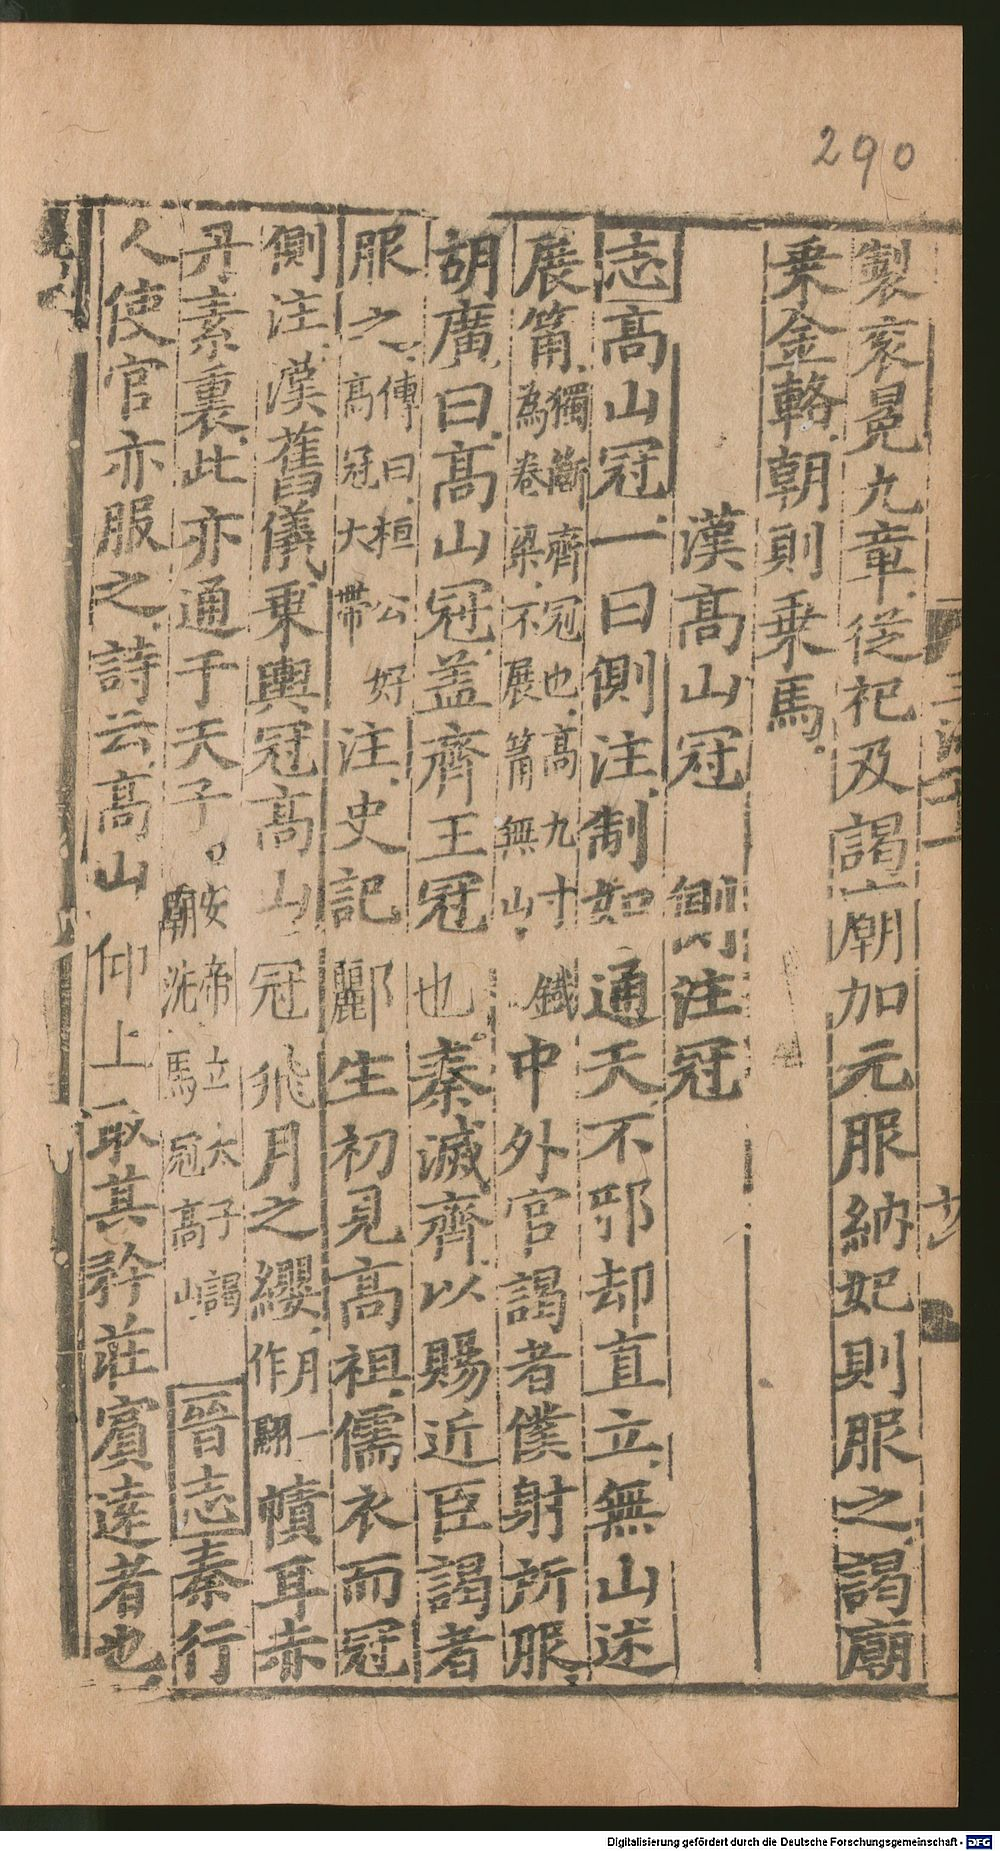 290
製衮冕九章從祀及謁廟加元服納妃則服之謁廟
乗金輅朝則乗馬
漢高山冠 側注冠
志高山冠一曰側注制如通天不邪却直立無山述
展筩獨斷齊冠也高九寸鐵為卷梁不展筩無山中外官謁者僕射所服
胡廣曰高山冠盖齊王冠也秦滅齊以賜近臣謁者
服之傳曰桓公好高冠大帶注史記酈生初見高祖儒衣而冠
側注漢舊儀乗輿冠高山冠飛月之纓月一作翮幘耳赤
丹素裏此亦通于天子安帝立太子謁廟洗馬冠高山晉志秦行
人使官亦服之詩云高山仰上取其矜莊賓逺者也
Digitalisierung gefördert durch die Deutsche Forschungsgemeinschaft - DFG